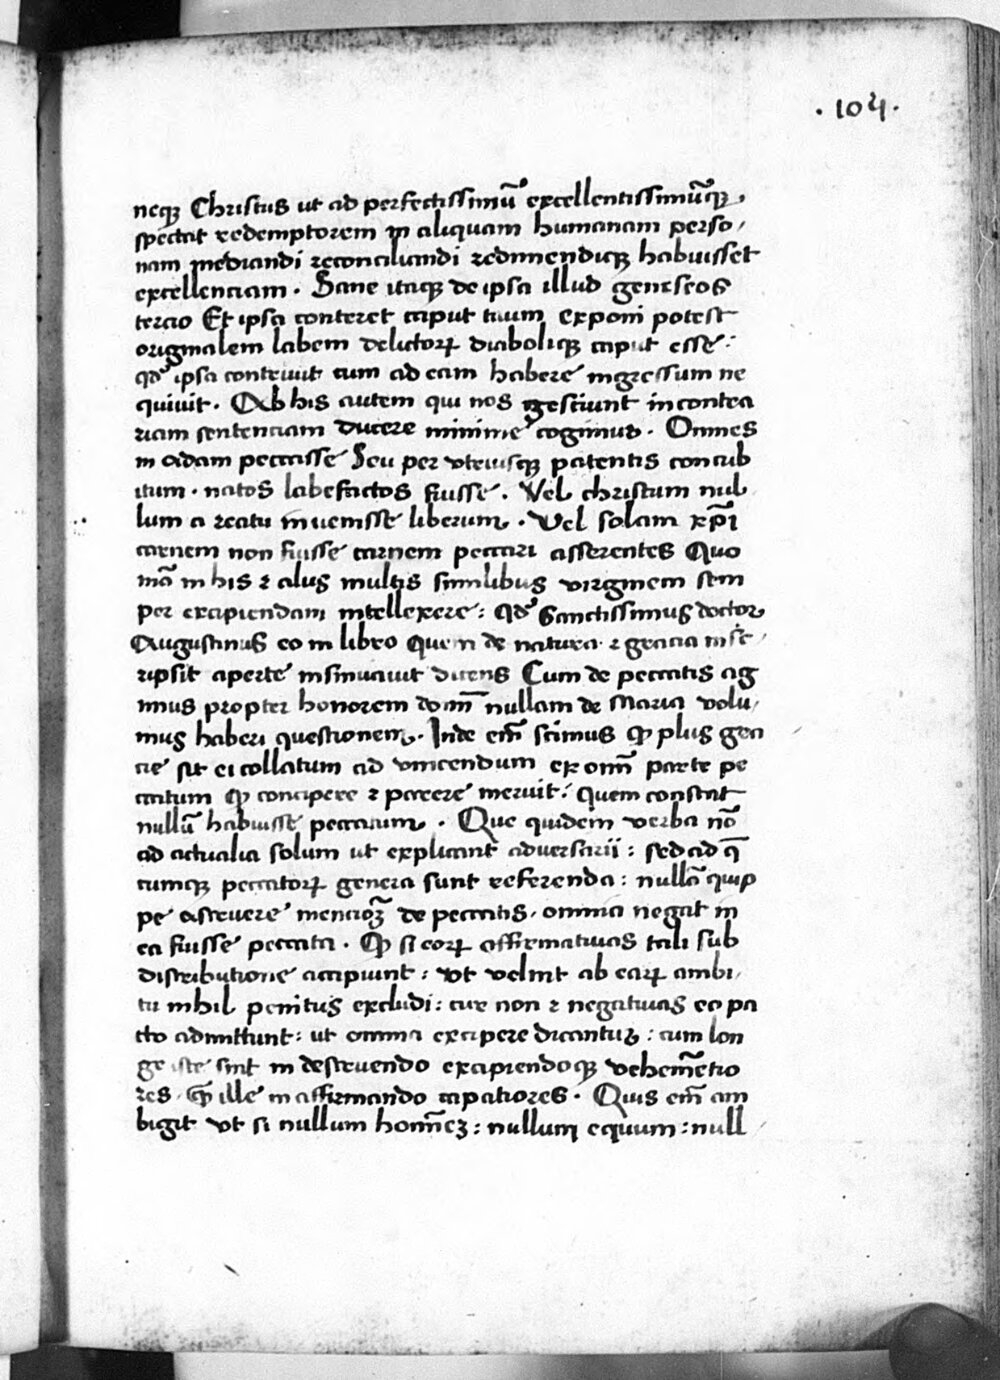 · 104 ·
neqꝫ Christus ut ad perfectissimū excellentissimūqꝫ
spectat redemptorem in aliquam humanam perso/
nam mediandi reconciliandi redimendiqꝫ habuisset
excellenciam . Sane itaqꝫ de ipsa illud geneseos
tercio Et ipsa conteret caput tuum exponi potest
originalem labem delictoꝝ diaboliqꝫ caput esse :
qđ ipsa contrivit cum ad eam habere ingressum ne
quivit . Ab his autem qui nos gestiunt in contra
riam sentenciam ducere minime cogimur . Omnes
in adam peccasse Seu per utriusqꝫ parentis concub
itum . natos labefactos fuisse . Vel christum nul
lum a reatu invenisse liberum . Vel solam xp̄i
carnem non fuisse carnem peccati asserentes Quo
niā in his ⁊ aliis multis similibus virginem sem
per excipiendam intellexere : Qđ Sanctissimus doctor
Augustinus eo in libro Quem de natura ⁊ gracia insc/
ripsit aperte insinuavit dicens Cum de peccatis ag
imus propter honorem dom̄ nullam de Maria volu/
mus haberi questionem . Inde em̄ scimus ꝙ plus gra
cie sit ei collatum ad vincendum ex om̄i parte pe
ccatum ꝙ concipere ⁊ parere meruit : quem constat
nullū habuisse peccatum . Que quidem verba nō
ad actualia solum ut explicant adversarii : sed ad q̄
cumqꝫ peccatoꝝ genera sunt referenda : nullā quip
pe astruere mencioꝫ de peccatis , omnia negat in
ea fuisse peccata . ꝙ si eoꝝ affirmativas tali sub
distributione accipiunt : ut velint ab eaꝝ ambi/
tu nihil penitus excludi : cur non ⁊ negativas eo pa
cto admittunt : ut omnia excipere dicantur : cum lon
ge iste sint in destruendo excipiendoqꝫ vehemēcio
res . ꝙ̄ ille in affirmando capatiores . Quis em̄ am
bigit ut si nullum homīeꝫ : nullum equum : null /